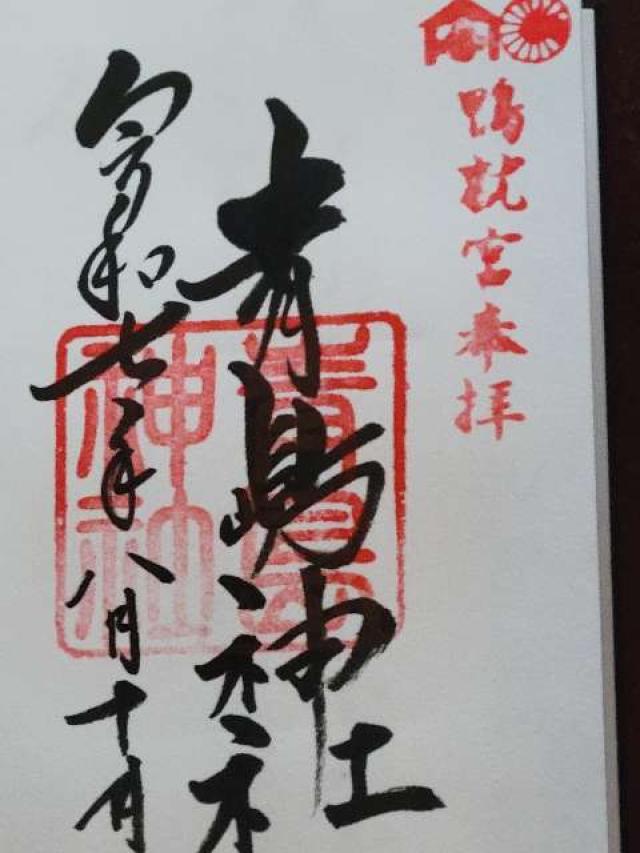 鴨就宮奉拝
青嶋神社
青島神社
令和七年八月十日